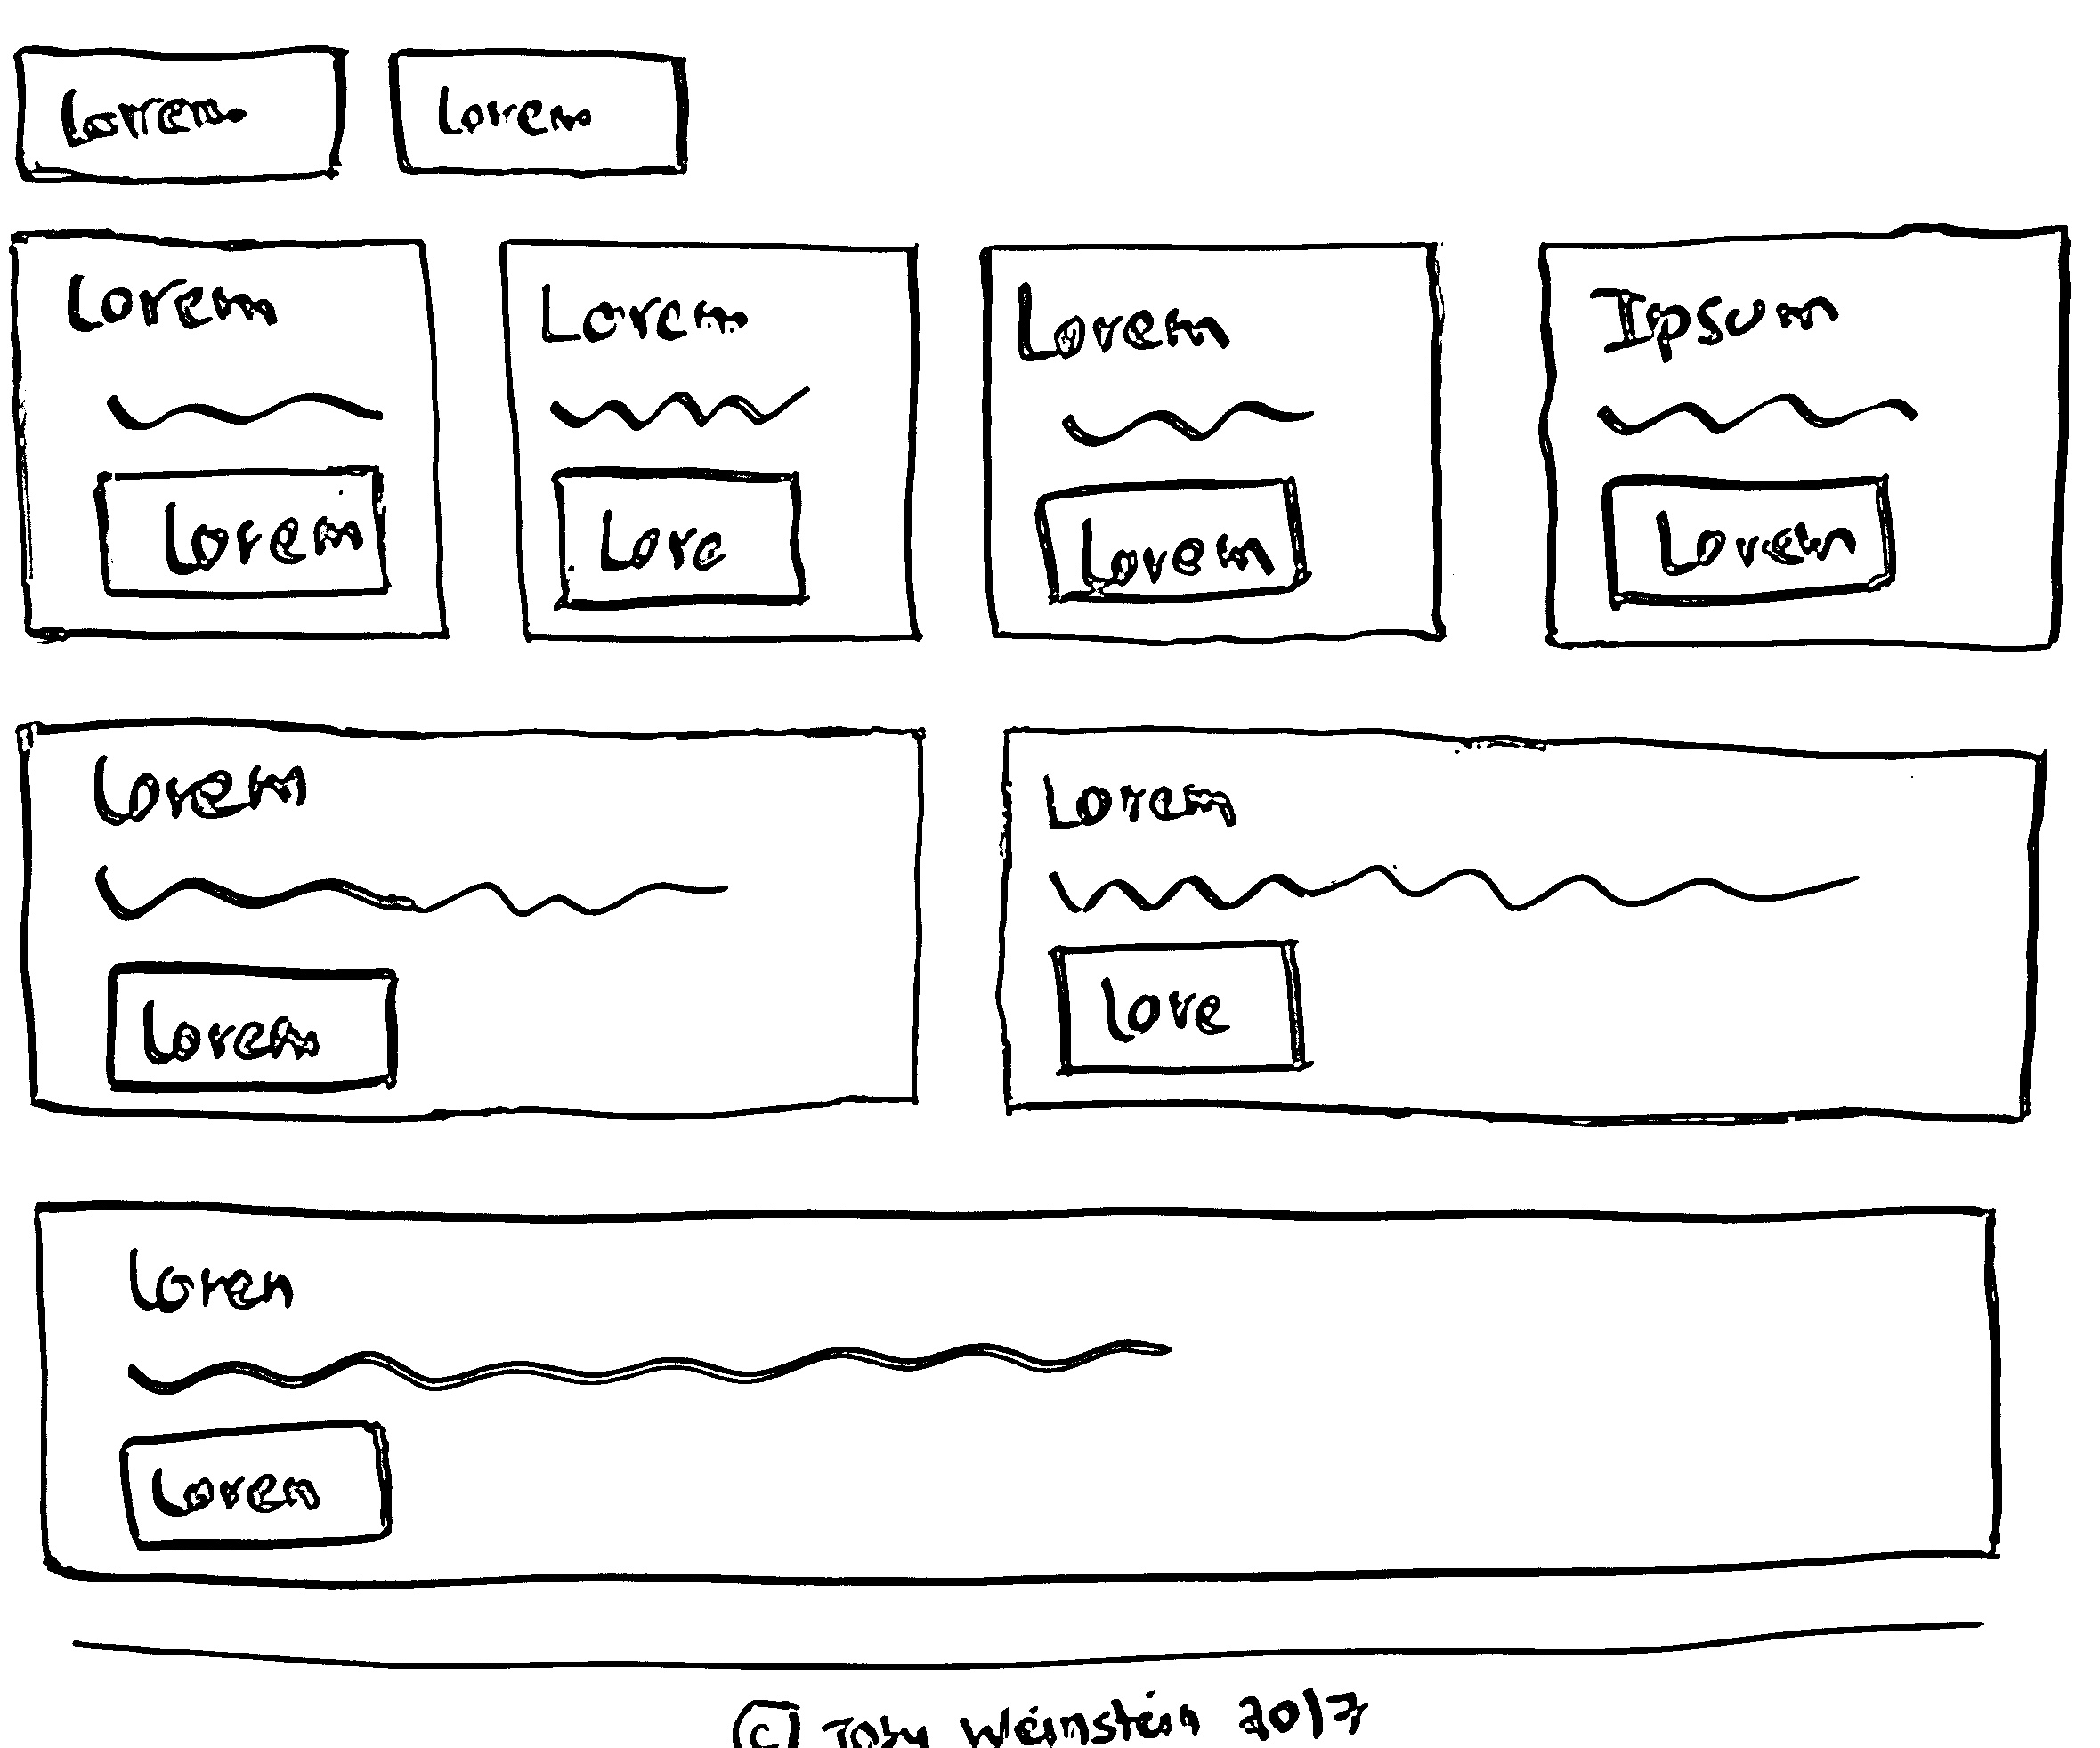 Lorem Lorem
Lorem Lorem Lorem Ipsum
Lorem Lore Lorem Lorem
Lorem Lorem
Lorem Lore
Loren
Loren
© Toby Weinstein 2017